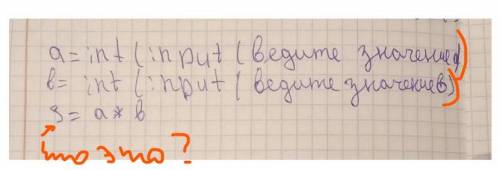 a = int (input (ведите значение a)
b = int (input (ведите значение b)
S = a * b
что это?